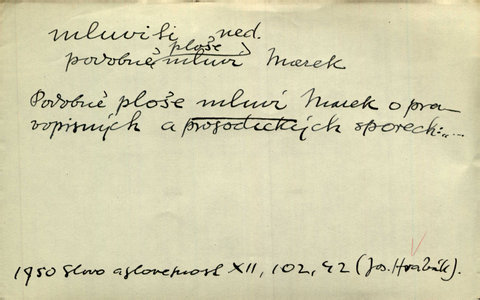 mluviti ned.
ploše
podobně, mluví Marek
Podobně ploše mluví Marek o pra-
vopisných a prosodických sporech: ....
1950 Slovo a slovesnost XII, 102, 42 (Jos. Hrabák).